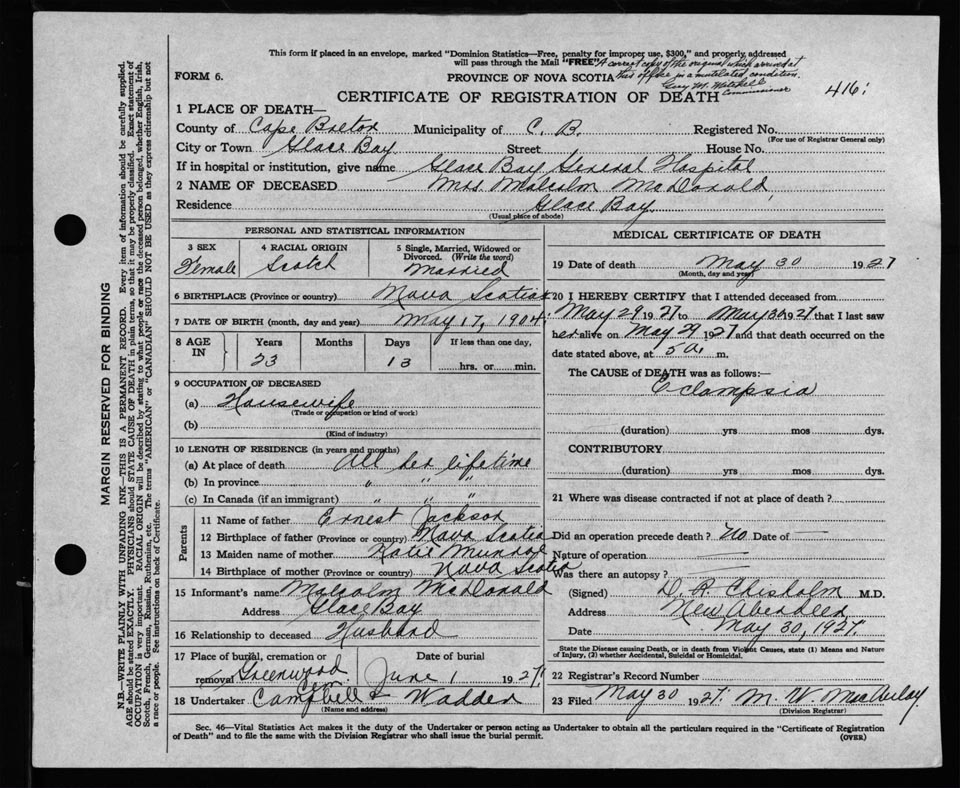 This form if placed in an envelope, marked "Dominion Statistics—Free, penalty for improper use, $300," and properly, addressed
will pass through the Mail "FREE"
A correct copy of the original which arrived at
this office in a mutelated condition.
Guy M. Mitchell
Commissioner
416
FORM 6.
PROVINCE OF NOVA SCOTIA
CERTIFICATE OF REGISTRATION OF DEATH
1 PLACE OF DEATH—
County of Cape Breton Municipality of C. B. Registered No.
(For use of Registrar General only)
City or Town Glace Bay Street House No.
If in hospital or institution, give name Glace Bay General Hospital
2 NAME OF DECEASED Mrs. Malcolm McDonald
Residence Glace Bay
(Usual place of abode)
PERSONAL AND STATISTICAL INFORMATION
3 SEX Female
4 RACIAL ORIGIN Scotch
5 Single, Married, Widowed or Divorced. (Write the word) Married
6 BIRTHPLACE (Province or country) Nova Scotia
7 DATE OF BIRTH (month, day and year) May 17, 1904
8 AGE IN Years Months Days If less than one day,
23 13 hrs. or min.
9 OCCUPATION OF DECEASED
(a) Housewife
(Trade or occupation or kind of work)
(b)
(Kind of industry)
10 LENGTH OF RESIDENCE (in years and months)
(a) At place of death All her lifetime
(b) In province " " "
(c) In Canada (if an immigrant) " " "
Parents
11 Name of father Ernest Jackson
12 Birthplace of father (Province or country) Nova Scotia
13 Maiden name of mother Katie Munroe
14 Birthplace of mother (Province or country) Nova Scotia
15 Informant's name Malcolm McDonald
Address Glace Bay
16 Relationship to deceased Husband
17 Place of burial, cremation or removal Greenwood Date of burial June 1 1927
18 Undertaker Campbell & Wadden
(Name and address)
MEDICAL CERTIFICATE OF DEATH
19 Date of death May 30 1927
(Month, day and year)
20 I HEREBY CERTIFY that I attended deceased from
May 29 1927 to May 30 1927 that I last saw
her alive on May 29 1927 and that death occurred on the
date stated above, at 5 a. m.
The CAUSE of DEATH was as follows:—
Eclampsia
(duration) yrs mos dys.
CONTRIBUTORY
(duration) yrs mos dys.
21 Where was disease contracted if not at place of death?
Did an operation precede death? No Date of
Nature of operation
Was there an autopsy?
(Signed) D. R. Chisholm M.D.
Address New Aberdeen
Date May 30, 1927.
State the Disease causing Death, or in death from Violent Causes, state (1) Means and Nature
of Injury, (2) whether Accidental, Suicidal or Homicidal.
22 Registrar's Record Number
23 Filed May 30 1927. M. W. MacAulay.
(Division Registrar)
Sec. 46—Vital Statistics Act makes it the duty of the Undertaker or person acting as Undertaker to obtain all the particulars required in the "Certificate of Registration
of Death" and to file the same with the Division Registrar who shall issue the burial permit.
(OVER)
MARGIN RESERVED FOR BINDING
N.B.—WRITE PLAINLY WITH UNFADING INK—THIS IS A PERMANENT RECORD. Every item of information should be carefully supplied.
AGE should be stated EXACTLY. PHYSICIANS should STATE CAUSE OF DEATH in plain terms, so that it may be properly classified. Exact statement of
OCCUPATION is very important. RACIAL ORIGIN will be described by stating to what people or race the deceased person belonged, whether English, Irish,
Scotch, French, German, Russian, Ruthenian, etc. The terms "AMERICAN" or "CANADIAN" SHOULD NOT BE USED as they express citizenship but not
a race or people. See instructions on back of Certificate.